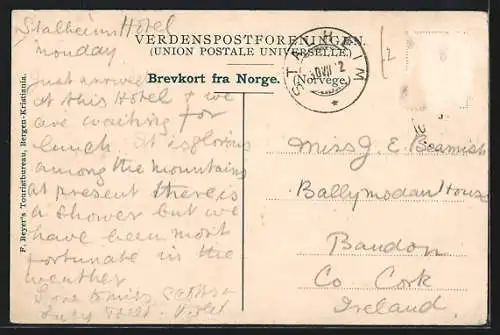 Stalheims Hotel
Monday
VERDENSPOSTFORENINGEN.
(UNION POSTALE UNIVERSELLE.)
Brevkort fra Norge.
(Norvège.)
STALHEIM
Just arrived
at this Hotel & we
are waiting for
lunch. It is glorious
among the mountains
at present there is
a shower but we
have been most
fortunate in the
weather
Love to
Lucy
F. Beyer's Touristbureau, Bergen-Kristiania.
Miss J. E. Beamish
Ballymodan House
Bandon
Co. Cork
Ireland.